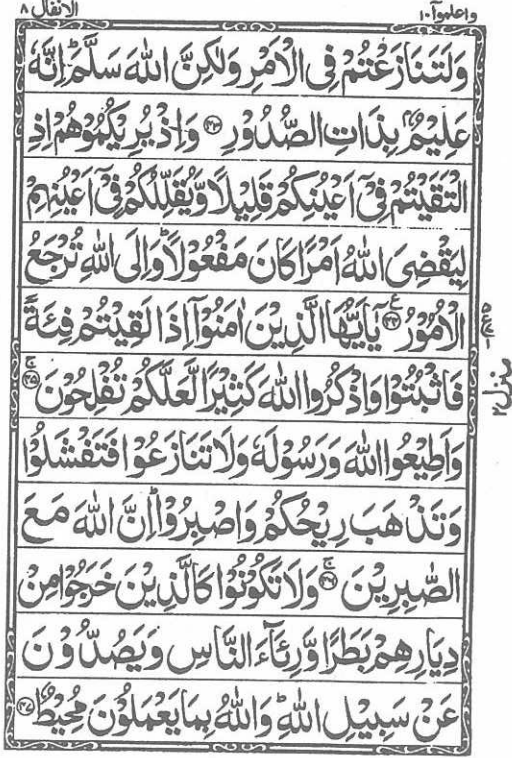 واعلموآ ١٠
الانفال ٨
وَلَتَنَازَعْتُمْ فِى الْاَمْرِ وَلٰكِنَّ اللّٰهَ سَلَّمَ ؕ اِنَّهٗ
عَلِيْمٌۢ بِذَاتِ الصُّدُوْرِ ﴿۴۳﴾ وَاِذْ يُرِيْكُمُوْهُمْ اِذِ
الْتَقَيْتُمْ فِىْۤ اَعْيُنِكُمْ قَلِيْلًا وَّيُقَلِّلُكُمْ فِىْۤ اَعْيُنِهِمْ
لِيَقْضِىَ اللّٰهُ اَمْرًا كَانَ مَفْعُوْلًا ؕ وَاِلَى اللّٰهِ تُرْجَعُ
الْاُمُوْرُ ﴿۴۴﴾ ع يٰۤاَيُّهَا الَّذِيْنَ اٰمَنُوْۤا اِذَا لَقِيْتُمْ فِئَةً
فَاثْبُتُوْا وَاذْكُرُوا اللّٰهَ كَثِيْرًا لَّعَلَّكُمْ تُفْلِحُوْنَ ۚ‏ ﴿۴۵﴾
وَاَطِيْعُوا اللّٰهَ وَرَسُوْلَهٗ وَلَا تَنَازَعُوْا فَتَفْشَلُوْا
وَتَذْهَبَ رِيْحُكُمْ وَاصْبِرُوْا ؕ اِنَّ اللّٰهَ مَعَ
الصّٰبِرِيْنَ ۚ‏ ﴿۴۶﴾ وَلَا تَكُوْنُوْا كَالَّذِيْنَ خَرَجُوْا مِنْ
دِيَارِهِمْ بَطَرًا وَّرِئَآءَ النَّاسِ وَيَصُدُّوْنَ
عَنْ سَبِيْلِ اللّٰهِ ؕ وَاللّٰهُ بِمَا يَعْمَلُوْنَ مُحِيْطٌ ﴿۴۷﴾
منزل ۲